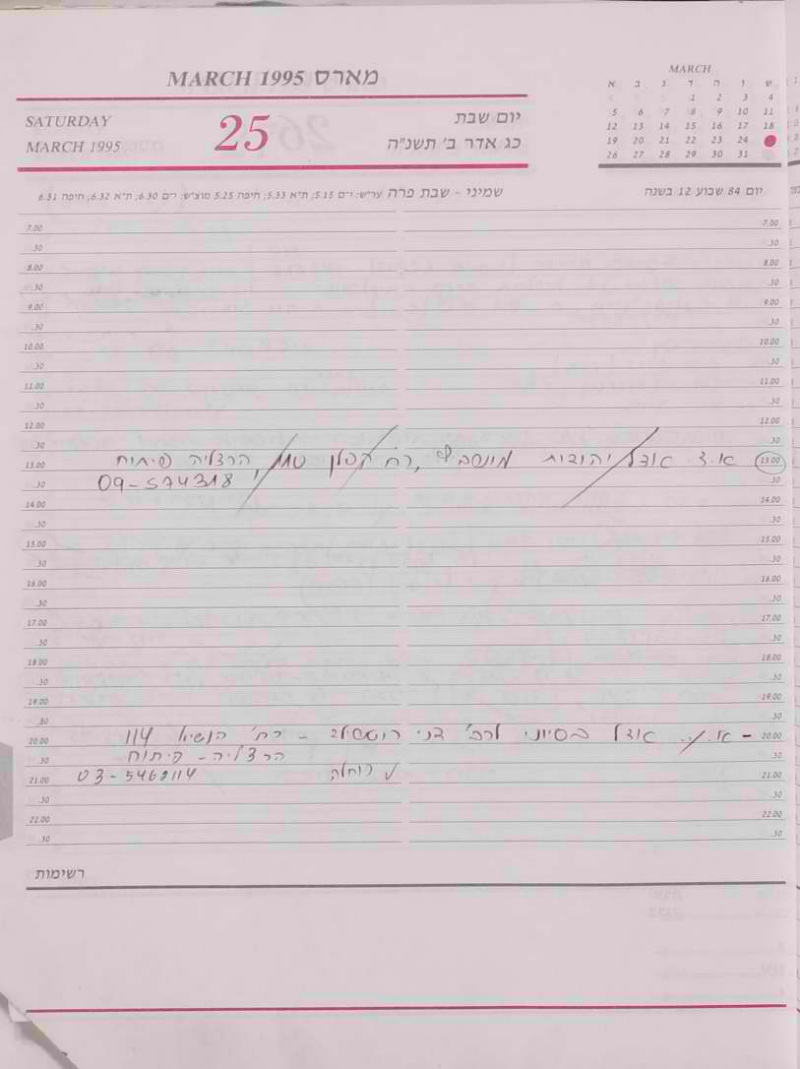 MARCH 1995 מארס
SATURDAY
MARCH 1995
25
יום שבת
כג אדר ב' תשנ"ה
MARCH
א ב ג ד ה ו ש
1 2 3 4
5 6 7 8 9 10 11
12 13 14 15 16 17 18
19 20 21 22 23 24
26 27 28 29 30 31
יום 84 שבוע 12 בשנה
שמיני - שבת פרה ער״ש: י-ם 5.15; ת״א 5.33; חיפה 5.25 מוצ״ש: י-ם 6.30; ת״א 6.32; חיפה 6.31
7.00
.30
8.00
.30
9.00
.30
10.00
.30
11.00
.30
12.00
.30
13.00 א.צ אצל יהודית רח קפלן הרצליה פיתוח
.30 09-574318
14.00
.30
15.00
.30
16.00
.30
17.00
.30
18.00
.30
19.00
.30
20.00 - אצל דני - רח' הנשיא 114
.30 הרצליה - פיתוח
21.00 03-5468114
.30
22.00
.30
רשימות